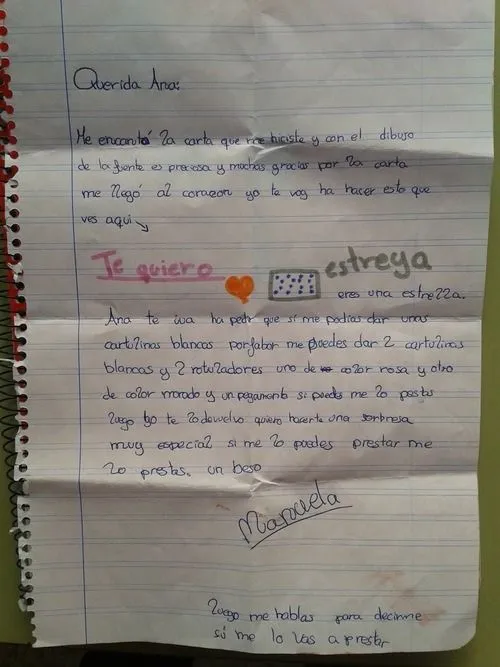 Querida Ana:
Me encantó la carta que me hiciste y con el dibujo
de la fuente es preciosa y muchas gracias por la carta
me llegó al corazon yo te voy ha hacer esto que
ves aqui
Te quiero estreya
eres una estrella.
Ana te iva ha pedir que si me podias dar unas
cartulinas blancas porfabor me puedes dar 2 cartulinas
blancas y 2 rotuladores uno de color rosa y otro
de color morado y un pegamento si puedes me lo pestas
luego yo te lo devuelvo quiero hacerte una sorbresa
muy especial si me lo puedes prestar me
lo prestas. un beso
Manuela
luego me hablas para decirme
si me lo vas a prestar